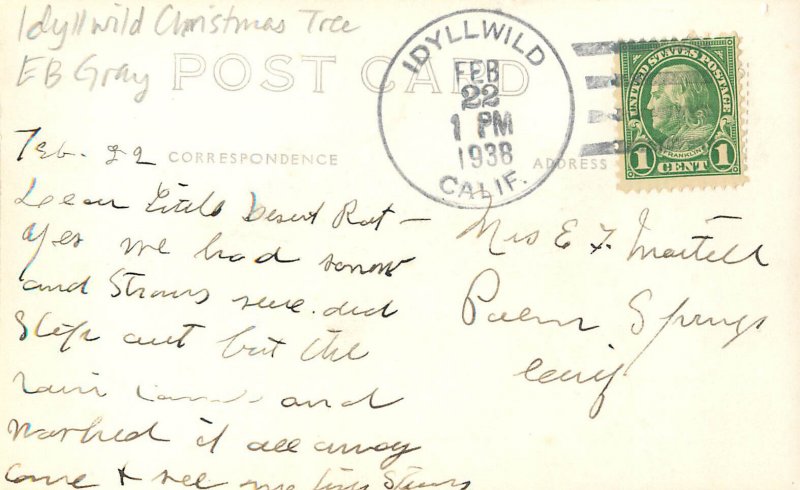 Idyllwild Christmas Tree
EB Gray
POST CARD
IDYLLWILD
FEB
22
1 PM
1938
CALIF.
UNITED STATES POSTAGE
FRANKLIN
1 CENT 1
CORRESPONDENCE
ADDRESS
Feb. 22
Dear Little Desert Rat —
Yes we had snow
and Straus sure did
Step out but the
rain came and
washed it all away
come & see me
Mrs E F Martell
Palm Springs
Calif